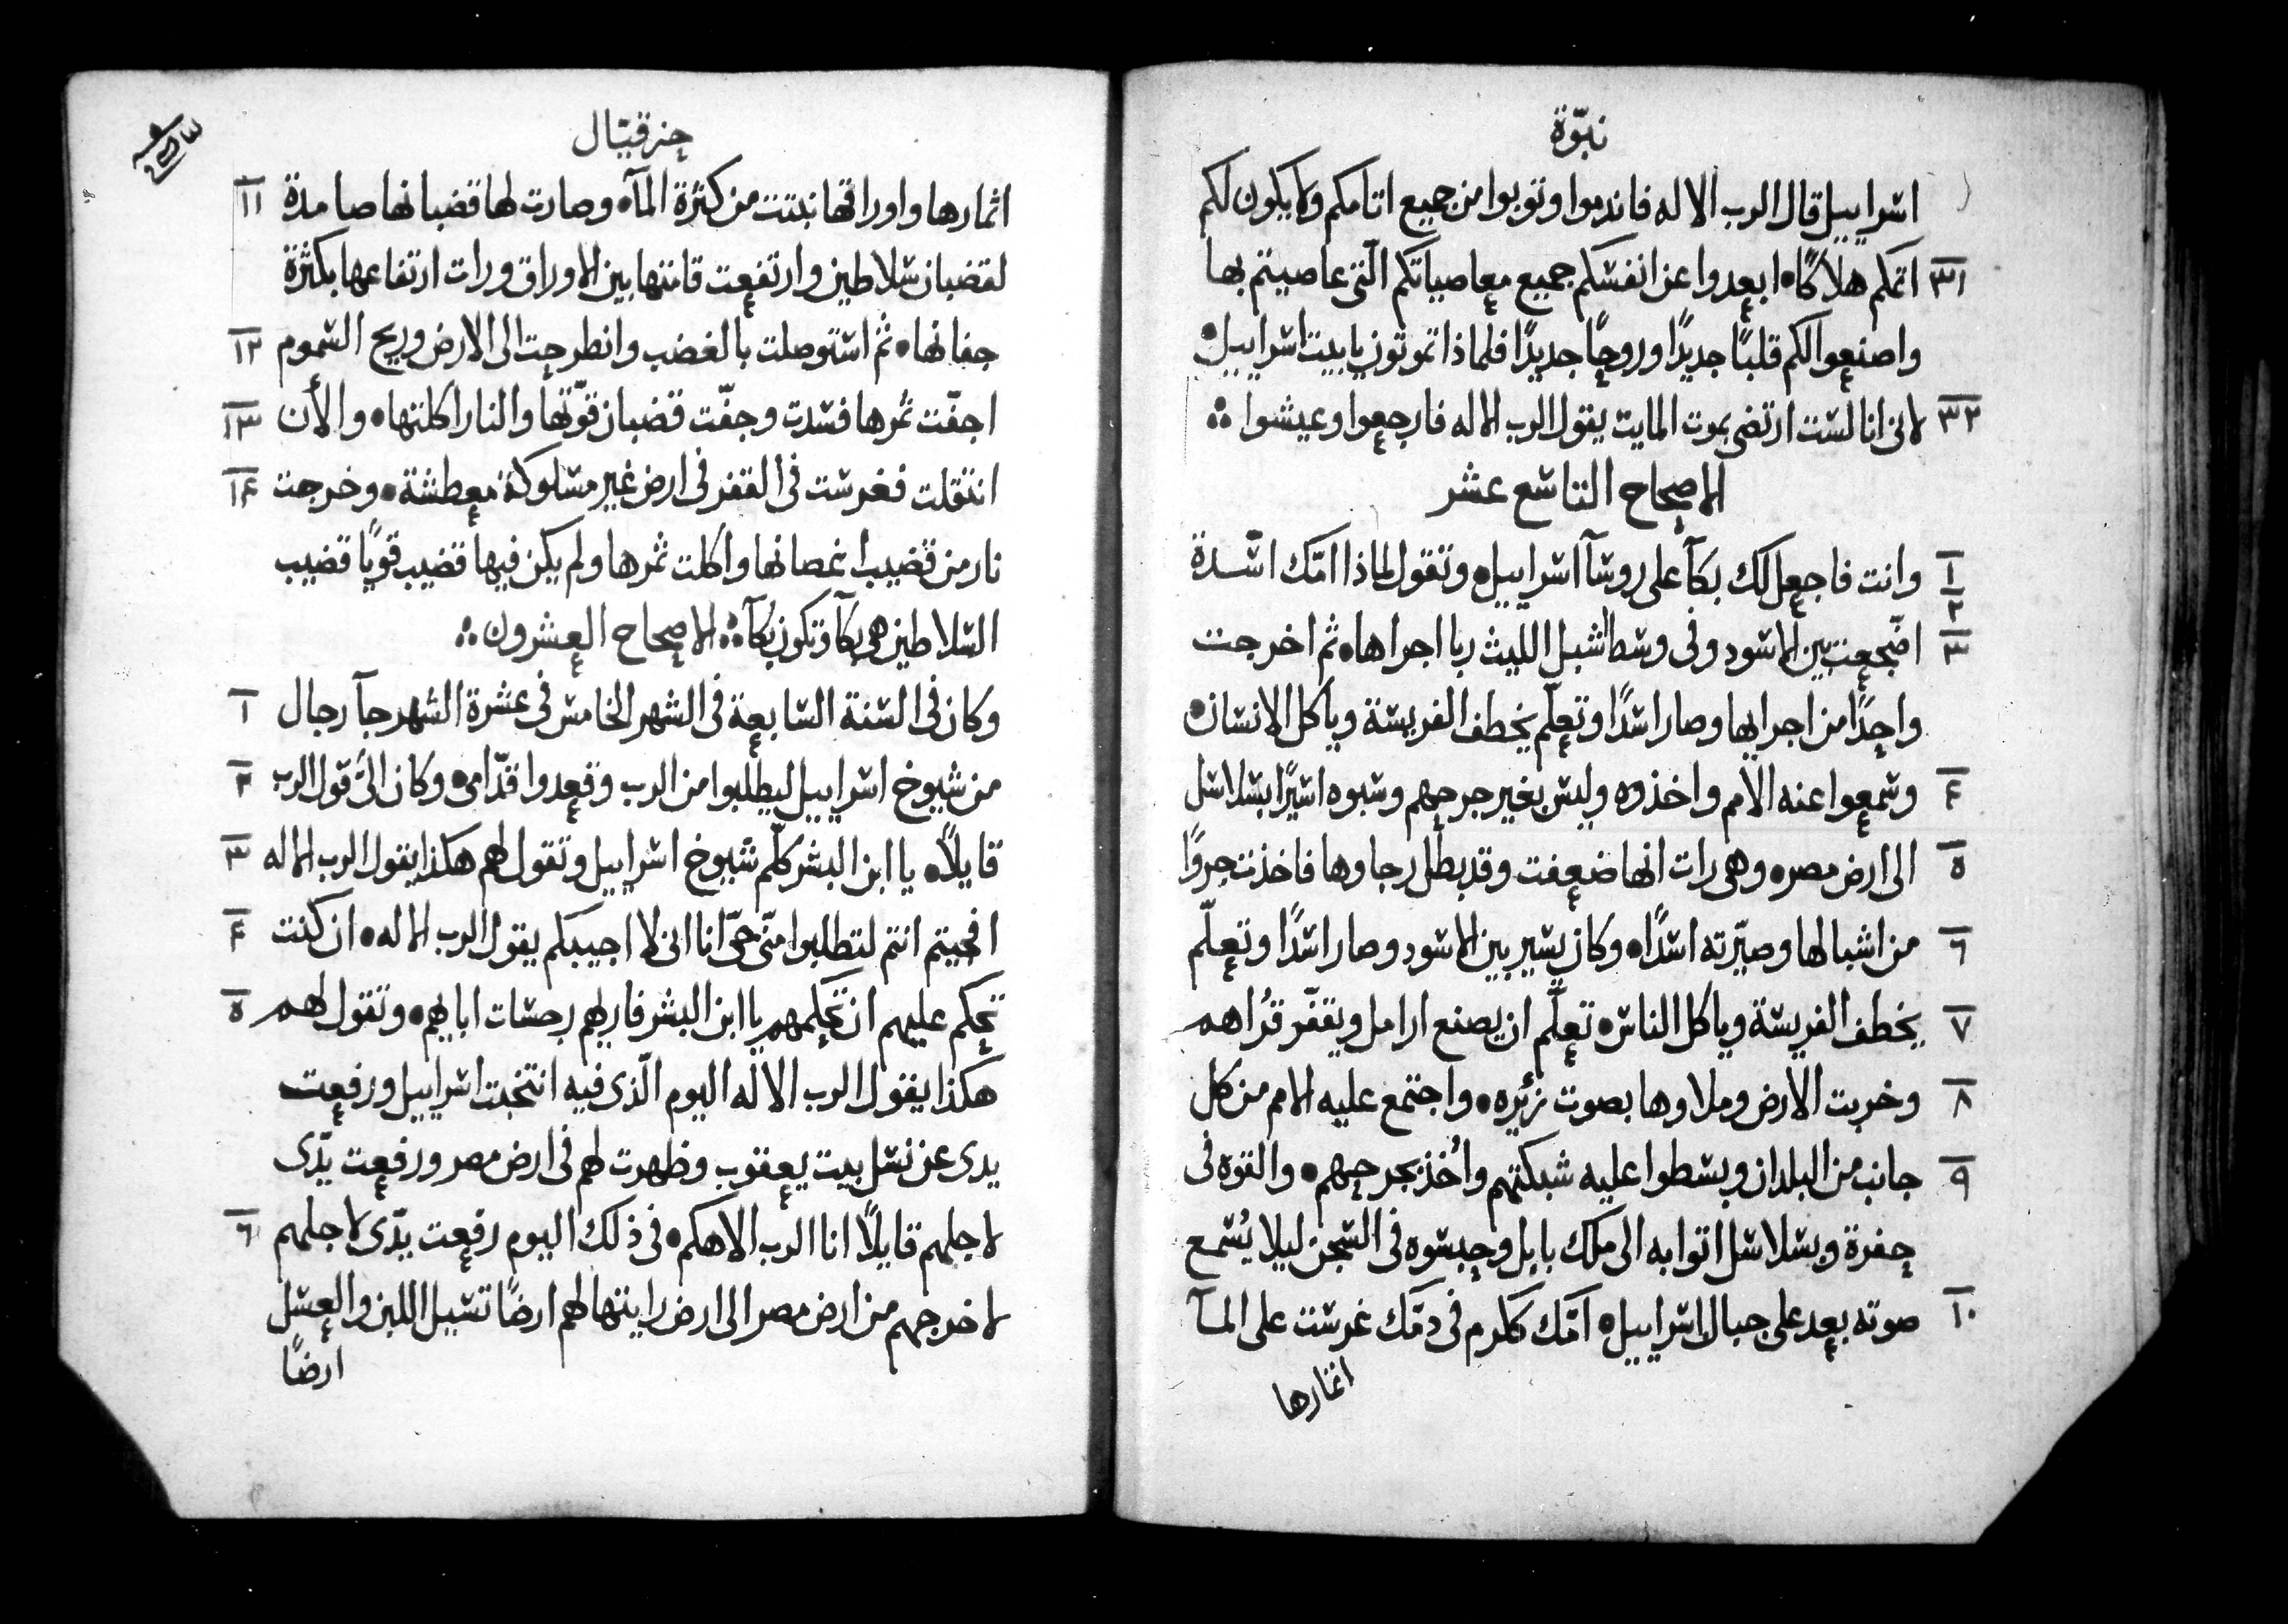 نبوّة
اسراييل قال الرب الاله فاندموا وتوبوا من جميع اثامكم ولا يكون لكم
٣١ اثمكم هلاكًا • ابعدوا عن انفسكم جميع معاصياتكم الّتى عاصيتم بها
واصنعوا لكم قلبًا جديدًا وروحًا جديدًا فلماذا تموتون يا بيت اسراييل •
٣٢ لانى انا لست ارتضى بموت المايت يقول الرب الاله فارجعوا وعيشوا ܀
الاصحاح التاسع عشر
١ ٢ وانت فاجعل لك بكآ على روسآ اسراييل • وتقول لماذا امّك اسّدة
٣ اضّجعت بين الاسود وفى وسط اشبل الليث ربا اجراها • ثم اخرجت
واحدًا من اجرايها وصار اسدًا وتعلّم يخطف الفريسة وياكل الانسان •
٤ وسمعوا عنه الامم واخذوه وليس بغير جرحهم وسبوه اسيرًا بسلاسل
٥ الى ارض مصر • وهى رات انها ضعفت وقد بطل رجاوها فاخذت جروًا
٦ من اشبالها وصيّرته اسدًا • وكان يسير بين الاسود وصار اسدًا وتعلّم
٧ يخطف الفريسة وياكل الناس • تعلّم ان يصنع ارامل ويقفّر قُراهم
٨ وخربت الارض وملاوها بصوت زئيره • واجتمع عليه الامم من كل
٩ جانب من البلدان وبسطوا عليه شبكتهم واُخذ بجرحهم • والقوه فى
حفرة وبسلاسل اتوا به الى ملك بابل وحبسوه فى السجن ليلا يُسمع
١٠ صوته بعد على جبال اسراييل • امّك ككرم فى دمّك غرست على المآ
اثمارها
حزقيال
اثمارها واوراقها نبتت من كثرة المآ • وصارت لها قضبانها صامدة ١١
لقضبان سلاطين وارتفعت قامتها بين الاوراق ورات ارتفاعها بكثرة
جفانها • ثم استوصلت بالغضب وانطرحت الى الارض وريح السموم ١٢
اجفّت ثمرها فسدت وجفّت قضبان قوّتها والنار اكلتها • والأن ١٣
انتقلت فغرست فى القفر فى ارض غير مسلوكة معطشة • وخرجت ١٤
نار من قضيب اغصانها واكلت ثمرها ولم يكن فيها قضيب قويًا قضيب
السلاطين هى بكآ وتكون بكآ ܀ الاصحاح العشرون ܀
وكان فى السنة السابعة فى الشهر الخامس فى عشرة الشهر جآ رجال ١
من شيوخ اسراييل ليطلبوا من الرب وقعدوا قدّامى • وكان الىّ قول الرب ٢
قايلاً • يا ابن البشر كلّم شيوخ اسراييل وتقول لهم هكذا يقول الرب الاله ٣
افجيتم انتم لتطلبوا منّى حىّ انا انى لا اجيبكم يقول الرب الاله • ان كنت ٤
تحكم عليهم ان تحكمهم يا ابن البشر فاريهم رجسات ابايهم • وتقول لهم ٥
هكذا يقول الرب الاله اليوم الّذى فيه انتخبت اسراييل ورفعت
يدى عن نسل بيت يعقوب وظهرت لهم فى ارض مصر ورفعت يدّى
لاجلهم قايلاً انا الرب الاهكم • فى ذلك اليوم رفعت يدّى لاجلهم ٦
لاخرجهم من ارض مصر الى ارض رايتها لهم ارضًا تسيل اللبن والعسل
ارضًا